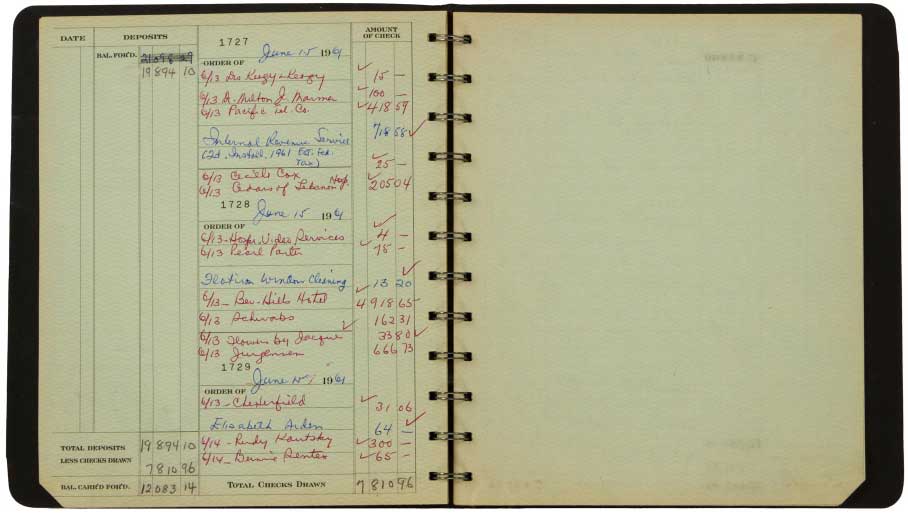 DATE DEPOSITS AMOUNT OF CHECK
BAL. FOR'D.
19 894 10
1727
June 15 1961
ORDER OF
6/13 Drs Keagy & Keagy 15 —
6/13 Dr. Milton J. 100 —
6/13 Pacific Tel. Co. 418 59
Internal Revenue Service 718 68
(2d. Install. 1961 Est. Fed. Tax)
6/13 Cecille Cox 25 —
6/13 Cedars of Lebanon Hosp. 205 04
1728
June 15 1961
ORDER OF
6/13 - Hosp. Video Services 4 —
6/13 Pearl Porter 75 —
Flatiron Window Cleaning 13 20
6/13 - Bev-Hills Hotel 4 918 65
6/13 Schwabs 162 31
6/13 Flowers by Jacques 33 80
6/13 Jurgensen 666 73
1729
June 15 1961
ORDER OF
6/13 - Chesterfield 31 06
Elizabeth Arden 64 —
6/14 - Rudy Kautsky 300 —
6/14 - Bernie 65 —
TOTAL DEPOSITS 19 894 10
LESS CHECKS DRAWN 7 810 96
BAL. CARR'D FOR'D. 12 083 14
TOTAL CHECKS DRAWN 7 810 96